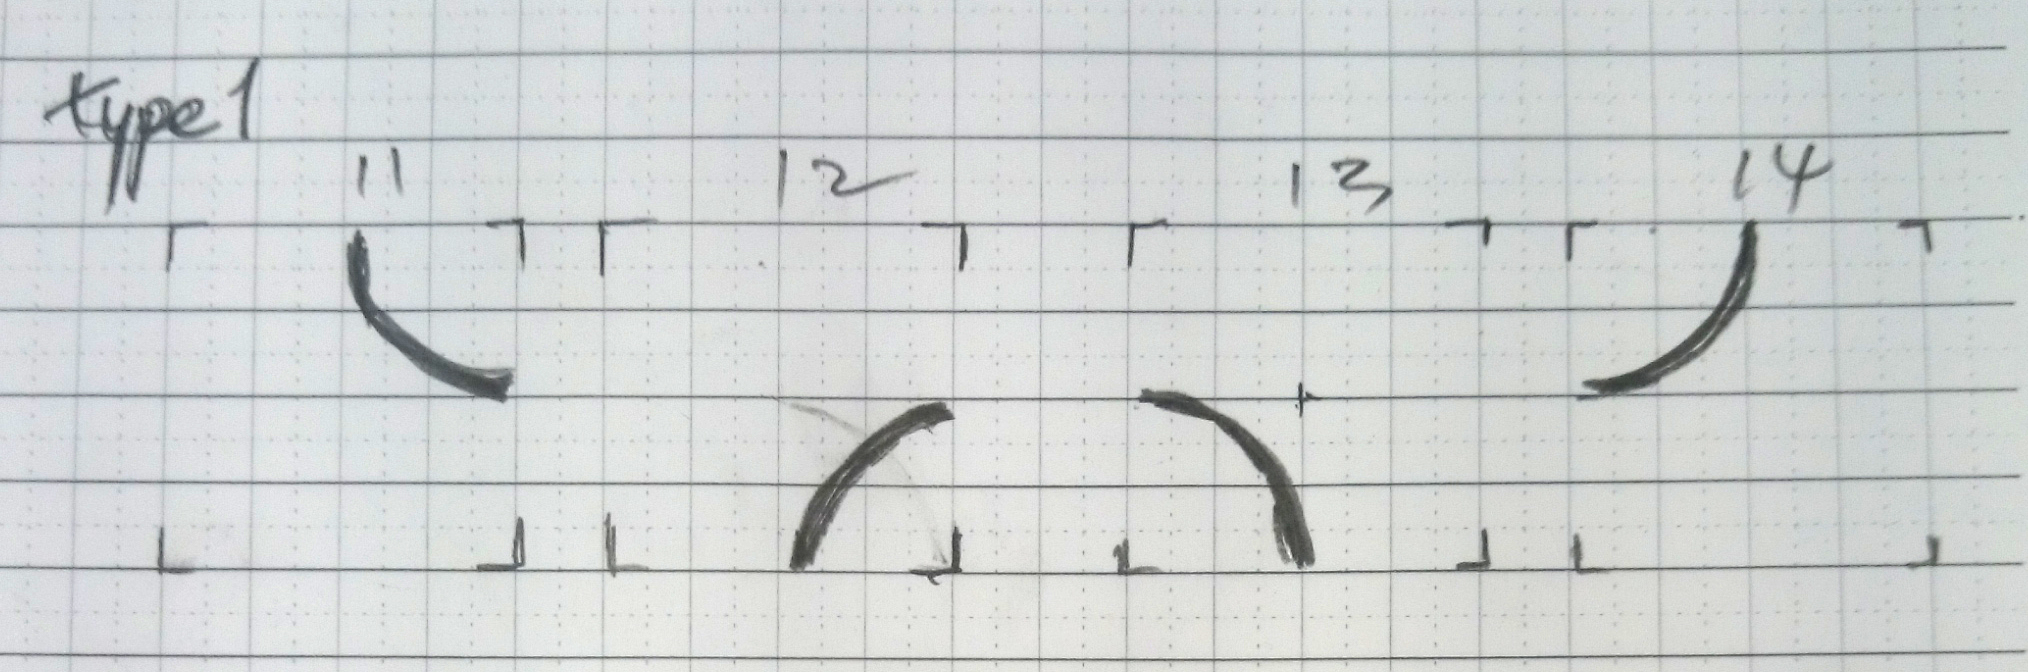 type1
11 12 13 14